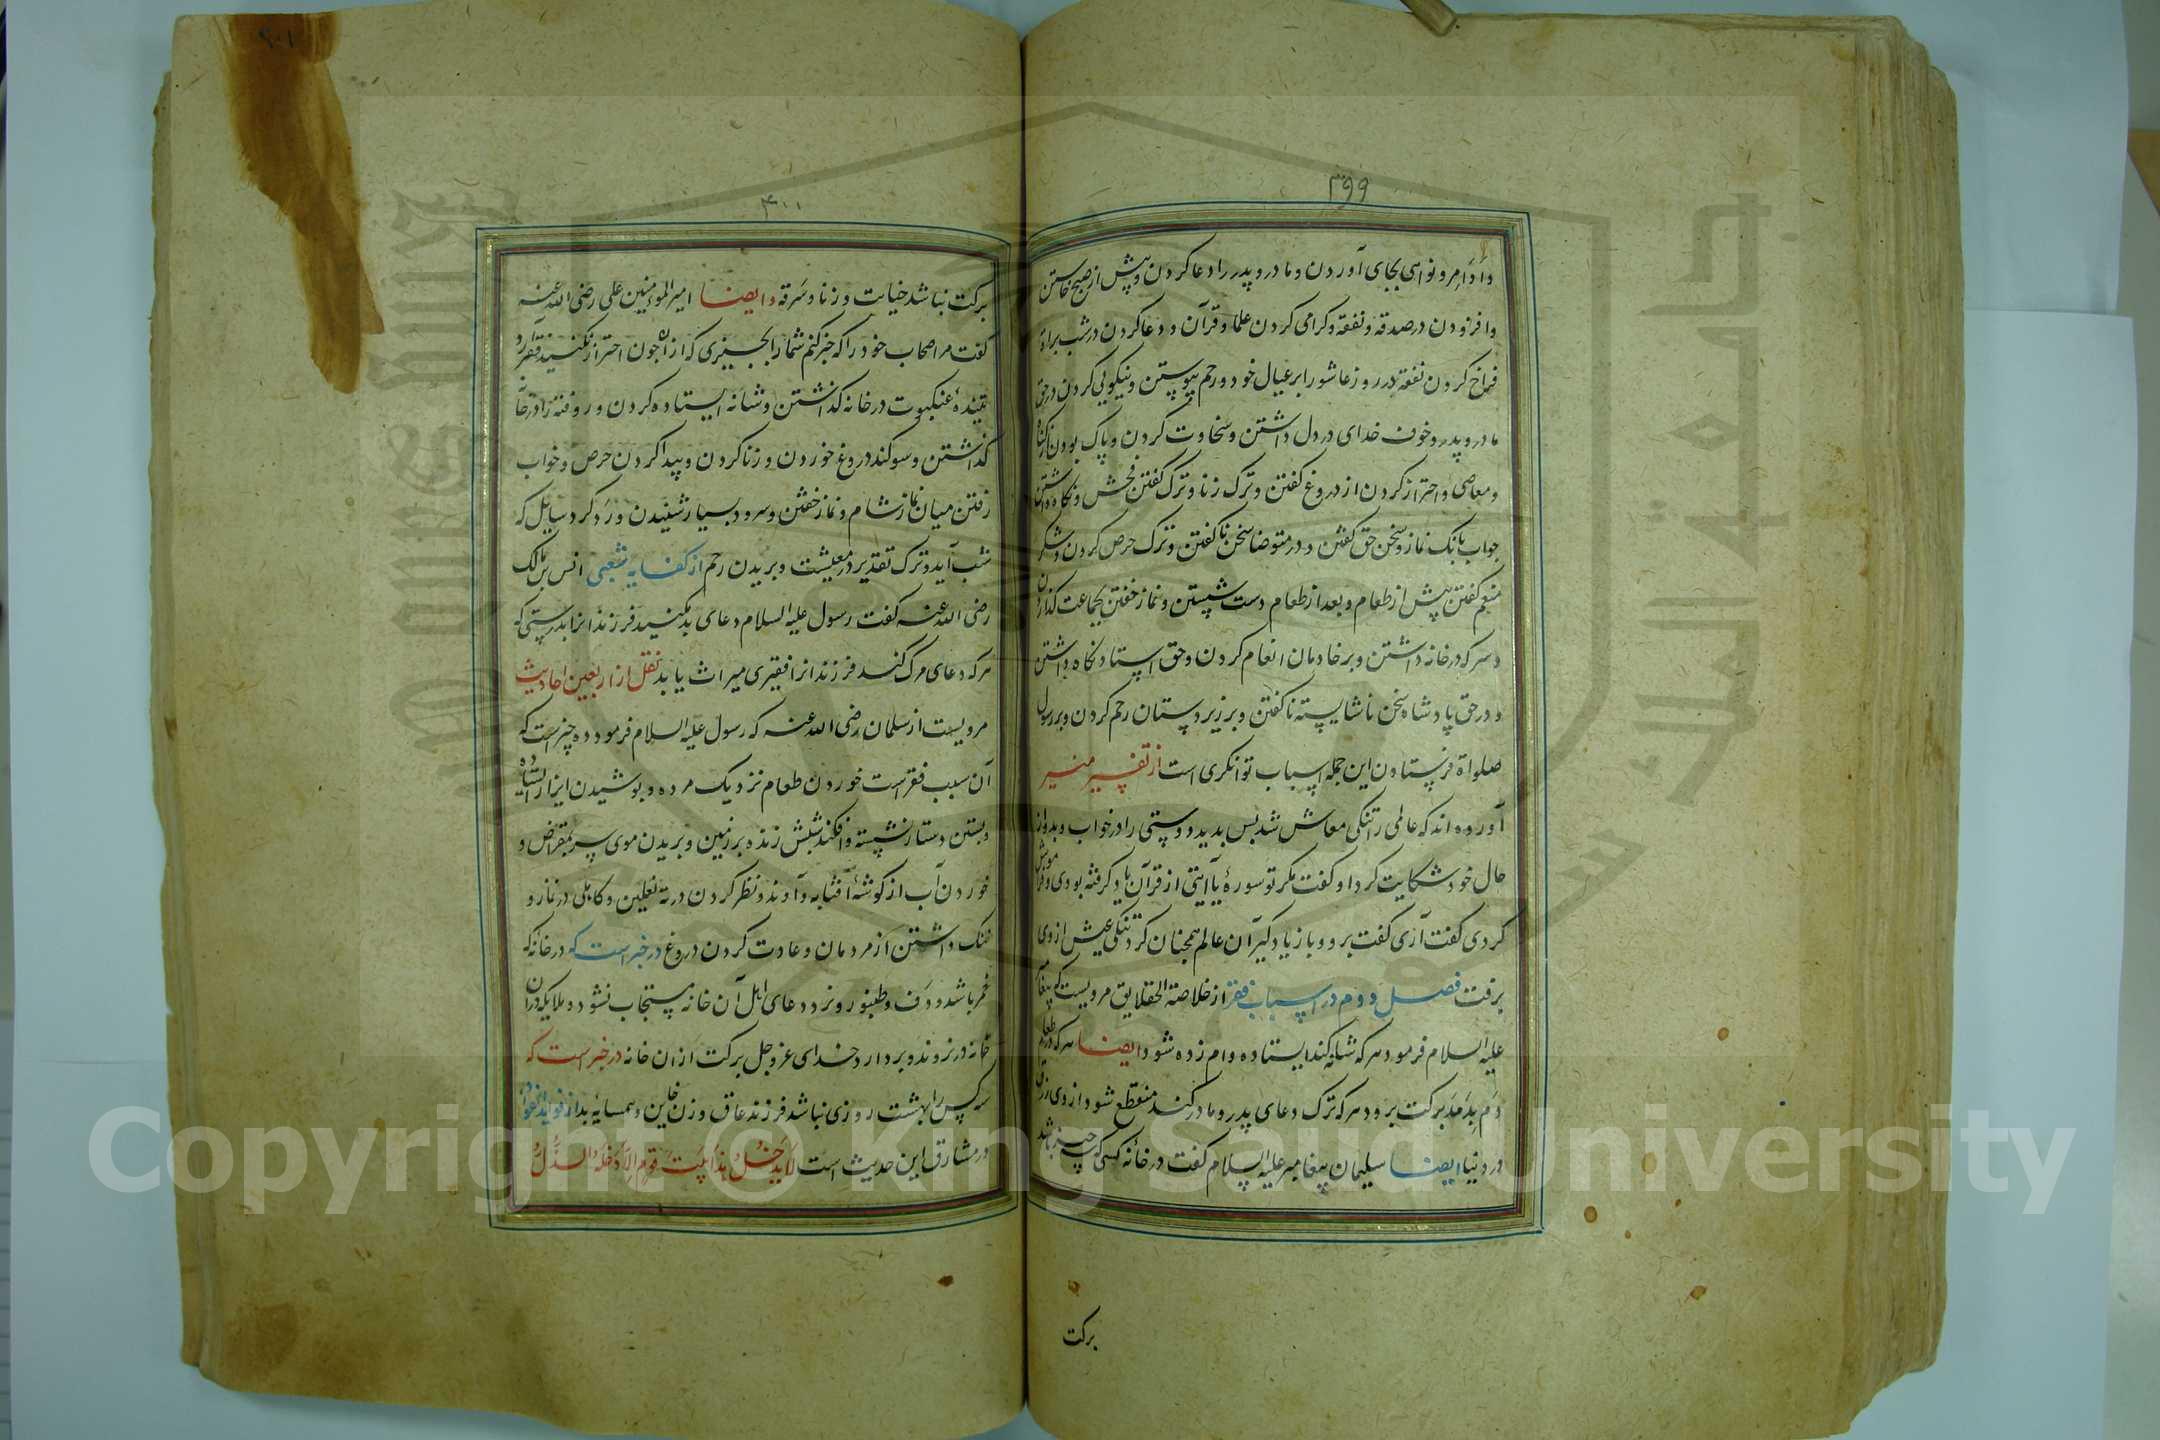 ۳۹۹
و اوامر و نواهی بجای آوردن و مادر و پدر را دعا کردن و پیش از صبح خاستن
و افزودن در صدقه و نفقه و کرامی کردن علما و قرآن و دعا کردن در شب برادر
فراخ کردن نفقه در روز عاشورا بر عیال خود و رحم پیوستن و نیکویی کردن در حق
مادر و پدر و خوف خدای در دل داشتن و سخاوت کردن و پاک بودن از کناه
و معاصی و احتراز کردن از دروغ کفتن و ترک زنا و ترک کفتن فحش و نکاه داشتن
جواب بانک نماز و سخن حق کفتن و در متوضا سخن ناکفتن و ترک حرص کردن و شکر
منعم کفتن پیش از طعام و بعد از طعام دست شستن و نماز خفتن بجماعت کذاردن
و سرکه در خانه داشتن و بر خادمان انعام کردن و حق استاد نکاه داشتن
و در حق پادشاه سخن ناشایسته ناکفتن و بر زیردستان رحم کردن و بر رسول
صلواة فرستادن این جمله اسباب توانکری است از تفسیر منیر
آورده اند که عالمی را تنکی معاش شد پس بدید دوستی را در خواب و بدو از
حال خود شکایت کرد او کفت مکر تو سورهٔ یا آیتی از قرآن یاد کرفته بودی و فراموش
کردی کفت آری کفت برو و باز یاد کیر آن عالم همچنان کرد تنکی عیش از وی
برفت فصل دوم در اسباب فقر از خلاصة الحقایق مرویست که پیغامبر
علیه السلام فرمود هر که شانه کند ایستاده وام زده شود ایضا هر که در طعام
دم بدمد برکت برود هر که ترک دعای پدر و مادر کند منقطع شود از وی رزق
در دنیا ایضا سلیمان پیغامبر علیه السلام کفت در خانهٔ کسی که چیز باشد
برکت
۴۰۰
برکت نباشد خیانت و زنا و سرقه و ایضا امیر المؤمنین علی رضی الله عنه
کفت مر اصحاب خود را که خبر کنم شما را بچیزی که از آن چون احتراز نکنید فقر آرد
تنیدهٔ عنکبوت در خانه کذاشتن و شانه ایستاده کردن و روفته را در خانه
کذاشتن و سوکند دروغ خوردن و زنا کردن و پیدا کردن حرص و خواب
رفتن میان نماز شام و نماز خفتن و سرود بسیار شنیدن و رد کرد سایل که
شب آید و ترک تقدیر در معیشت و بریدن رحم از کفایه شعبی انس بن مالک
رضی الله عنه کفت رسول علیه السلام دعای بد مکنید فرزندانرا بدرستی که
هر که دعای مرک کند فرزندانرا فقیری میراث یابد نقل از اربعین احادیث
مرویست از سلمان رضی الله عنه که رسول علیه السلام فرمود ده چیز است که
آن سبب فقر است خوردن طعام نزدیک مرده و پوشیدن ایزار ایستاده
و بستن دستار نشسته و افکند شپش زنده بر زمین و بریدن موی سر بمقراض و
خوردن آب از کوشهٔ آفتابه و آوند و نظر کردن در ته نعلین و کاهلی در نماز و
ننک داشتن از مردمان و عادت کردن دروغ در خبر است که در خانه که
خمر باشد و دف و طنبور و نرد دعای اهل آن خانه مستجاب نشود و ملایکه در آن
خانه در نروند و بردارد خدای عز و جل برکت از ان خانه در خبر است که
سه کس را بهشت روزی نباشد فرزند عاق و زن خاین و همسایهٔ بد از فواید الفؤاد
در مشارق این حدیث است لا یدخل هذا بیت قوم الا دخله الذل
Copyright © King Saud University